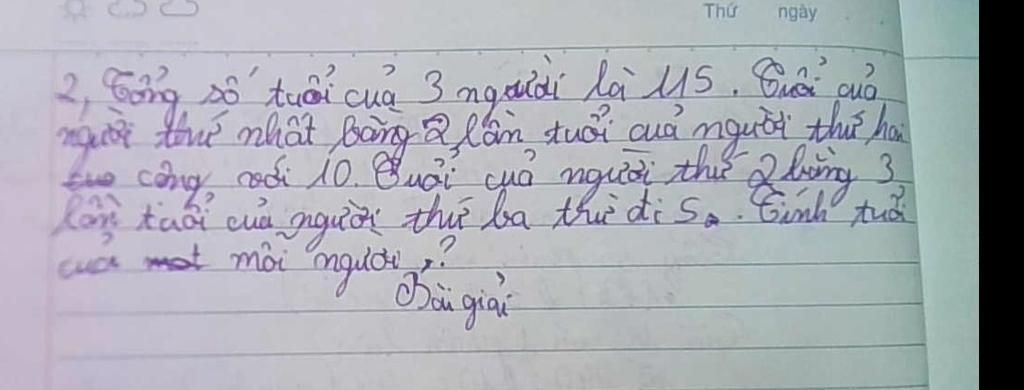 Thứ ngày
2, Tổng số tuổi của 3 người là 115. Tuổi của
người thứ nhất bằng 2 lần tuổi của người thứ hai
cộng với 10. Tuổi của người thứ 2 bằng 3
lần tuổi của người thứ ba trừ đi 5. Tính tuổi
của mỗi người ?
Bài giải